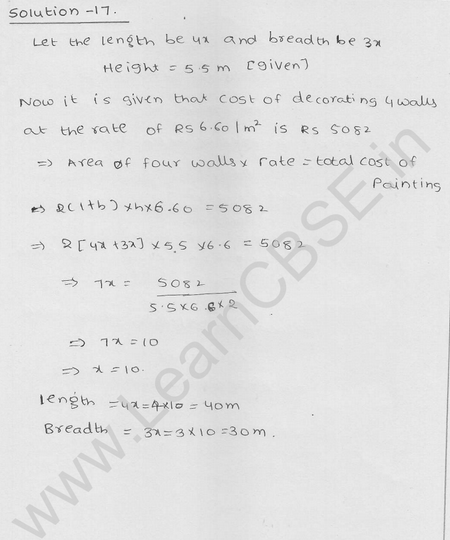 Solution -17.
Let the length be 4x and breadth be 3x
Height = 5.5 m [given]
Now it is given that cost of decorating 4 walls
at the rate of RS 6.60/m² is RS 5082
⇒ Area of four walls x rate = total cost of
Painting
⇒ 2(l+b) x h x 6.60 = 5082
⇒ 2[4x+3x] x 5.5 x 6.6 = 5082
⇒ 7x = 5082
5.5x6.6x2
⇒ 7x = 10
⇒ x = 10.
length = 4x = 4x10 = 40m
Breadth = 3x = 3x10 = 30m.
www.LearnCBSE.in